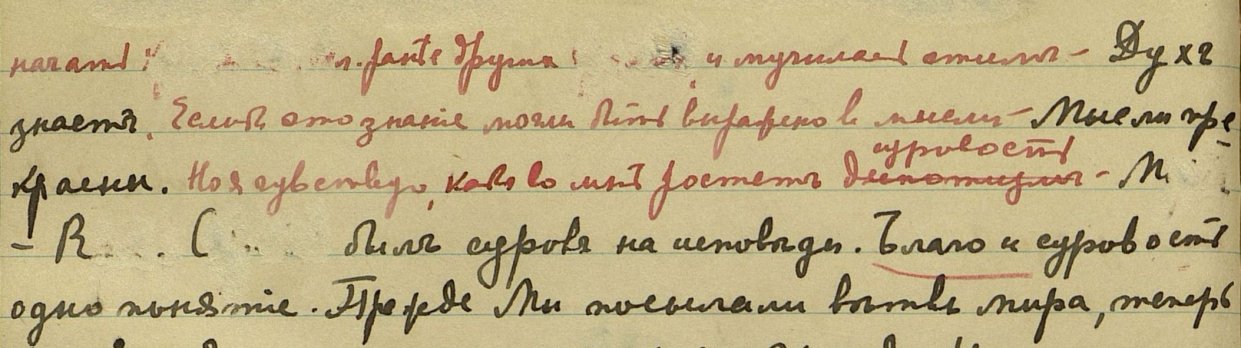 начать и мучилась этимъ – Духъ
знаетъ. Еслибъ это знаніе могли быть выражено в мысли – Мысли пре-
красны. Но я чувствую, какъ во мнѣ ростетъ деспотизмъ суровость – М
– R. . . . С . . . былъ суровъ на исповѣди. Благо и суровость
одно понятіе. Прежде Мы посылали вѣтвь мира, теперь